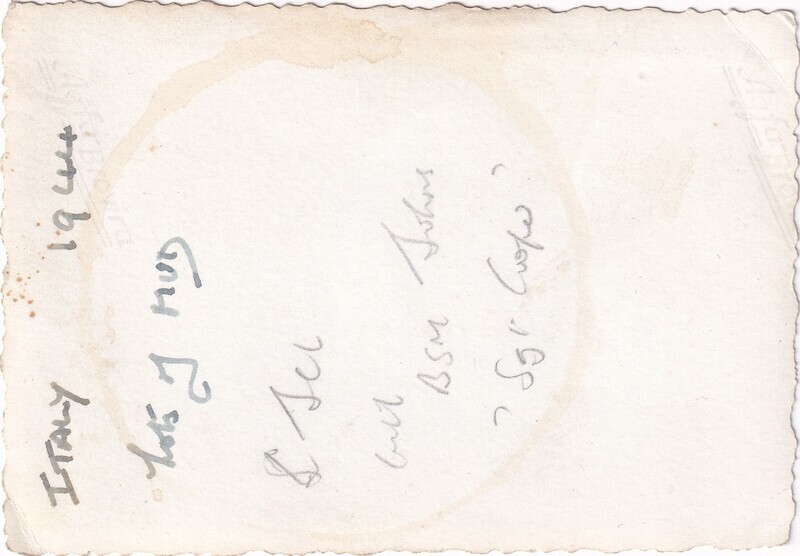 ITALY 1944
Lots of MUD
with
BSM Johns
Sgt Cooper